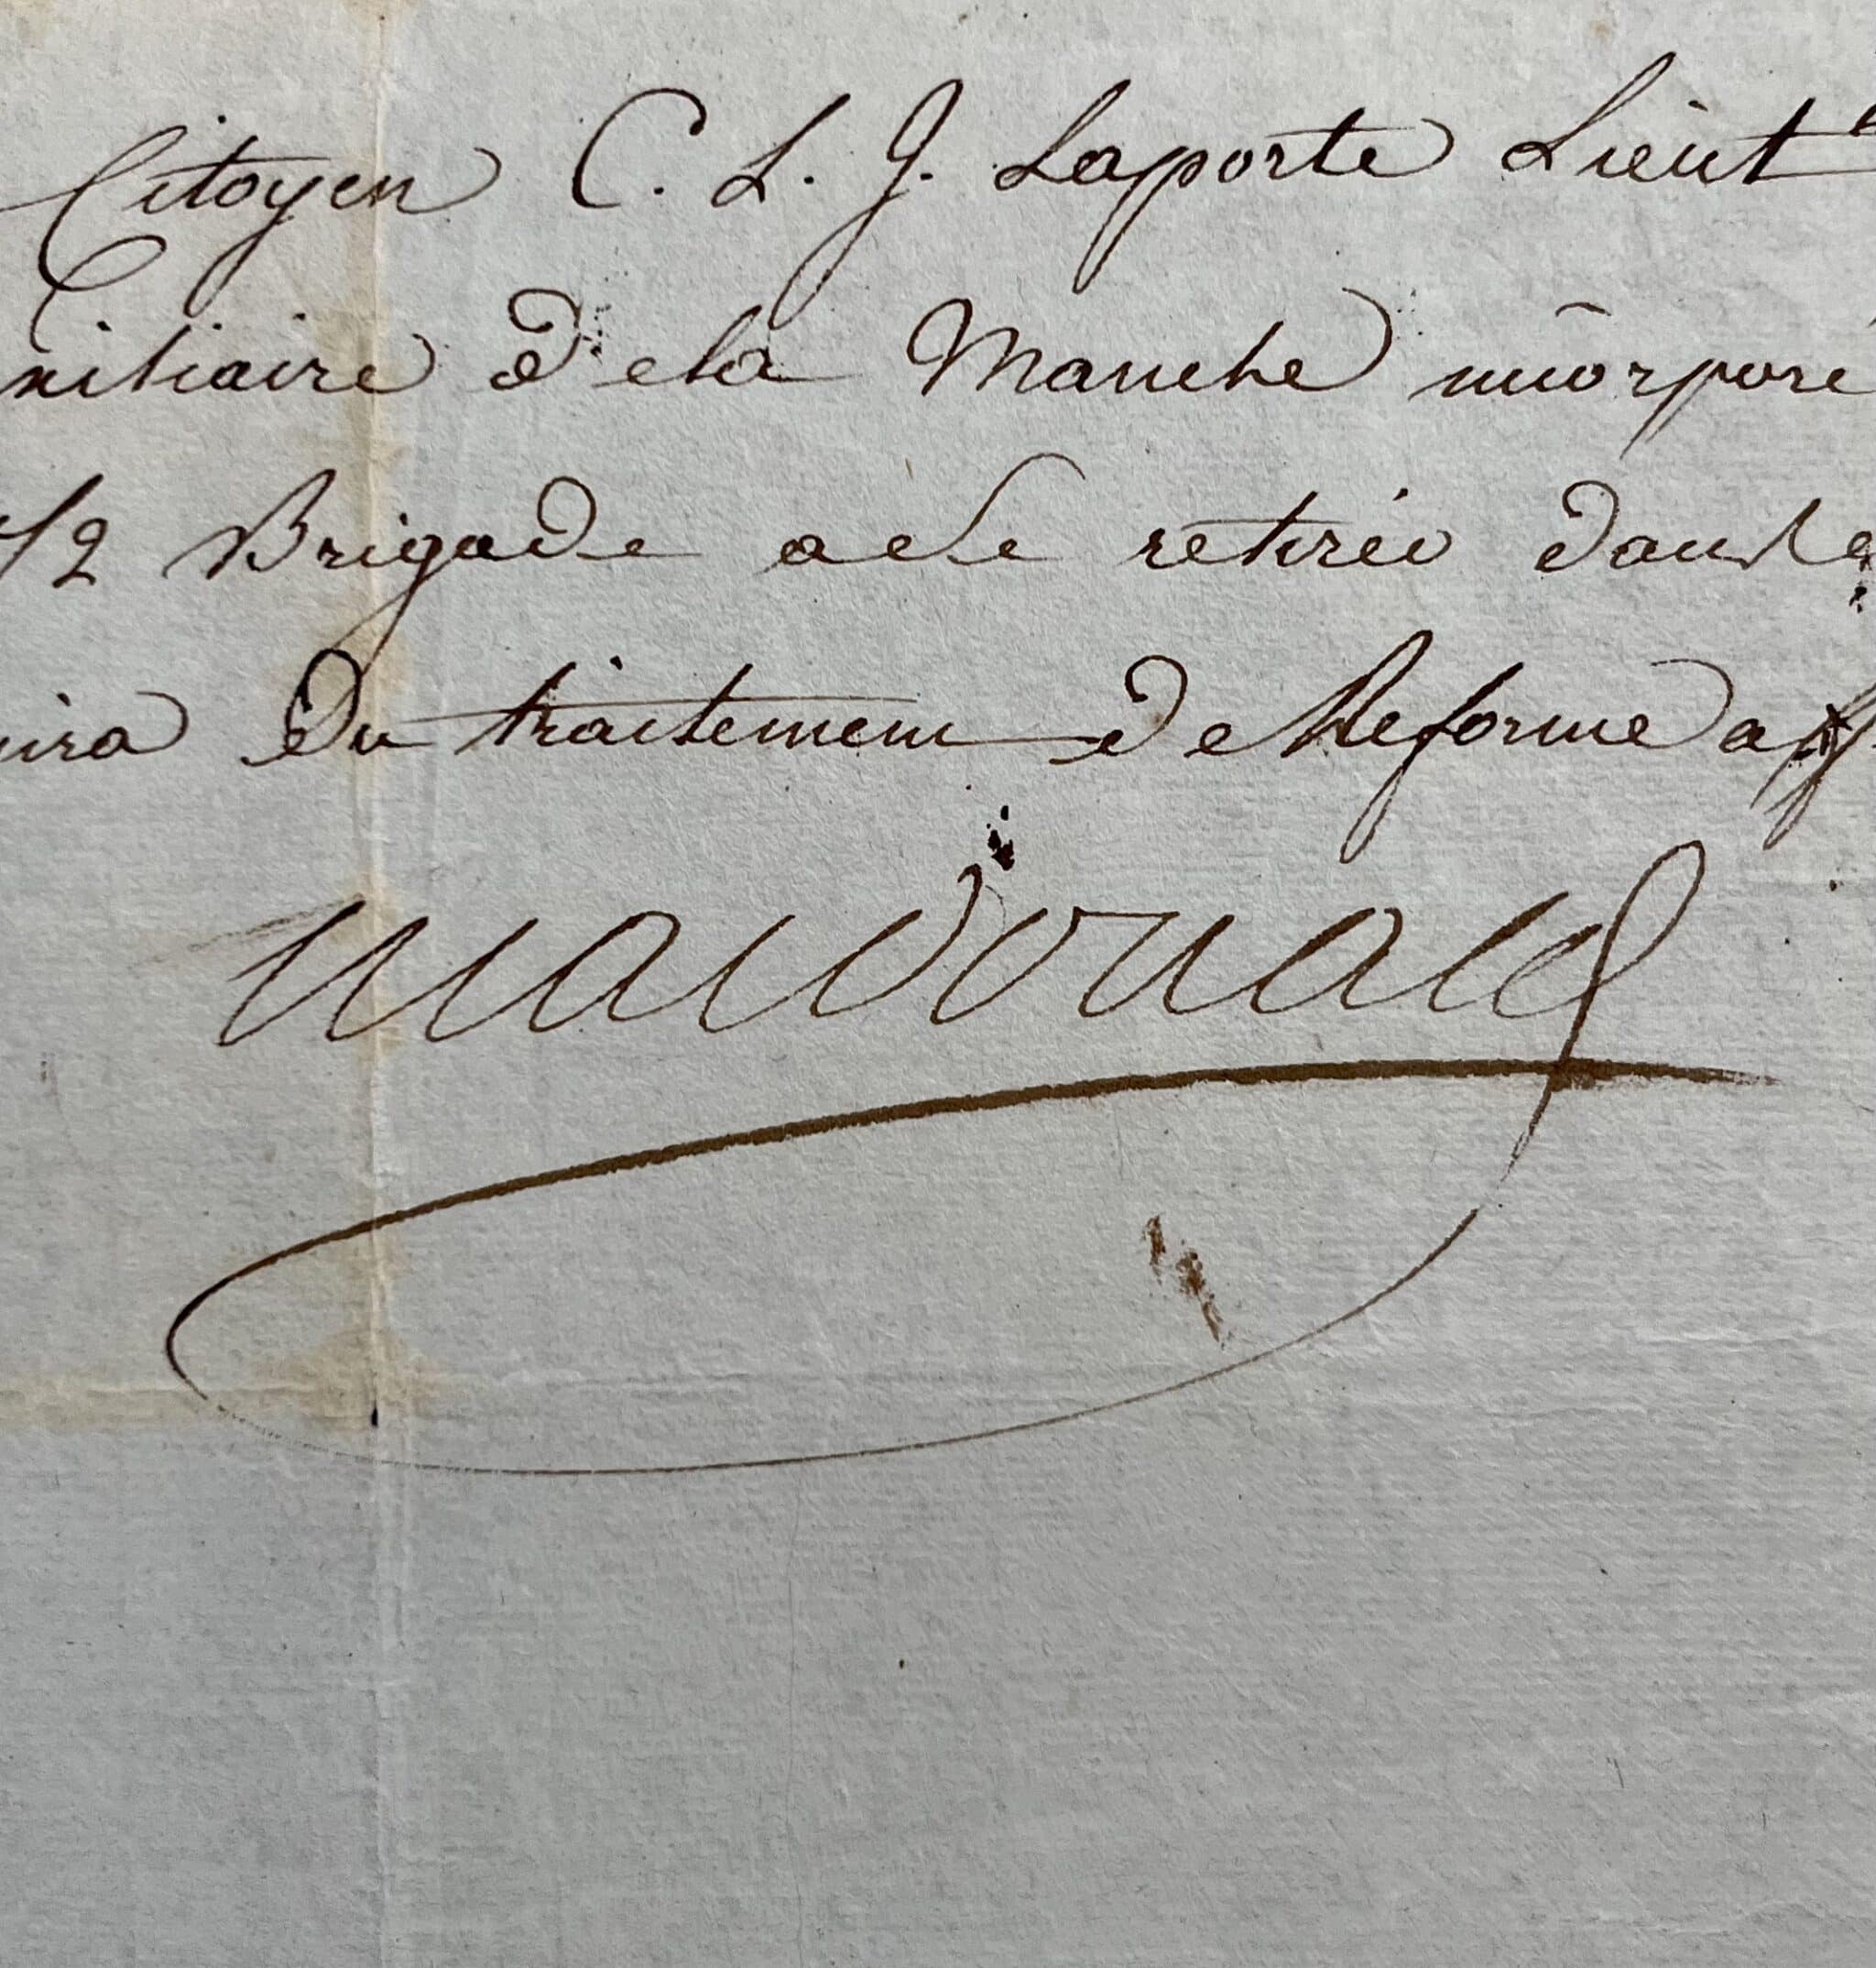 Citoyen C. L. J. Laporte Lieut
de la Manche incorporé
1/2 Brigade a Se retirer dans Le
du traitement de Reforme aff
macdonald